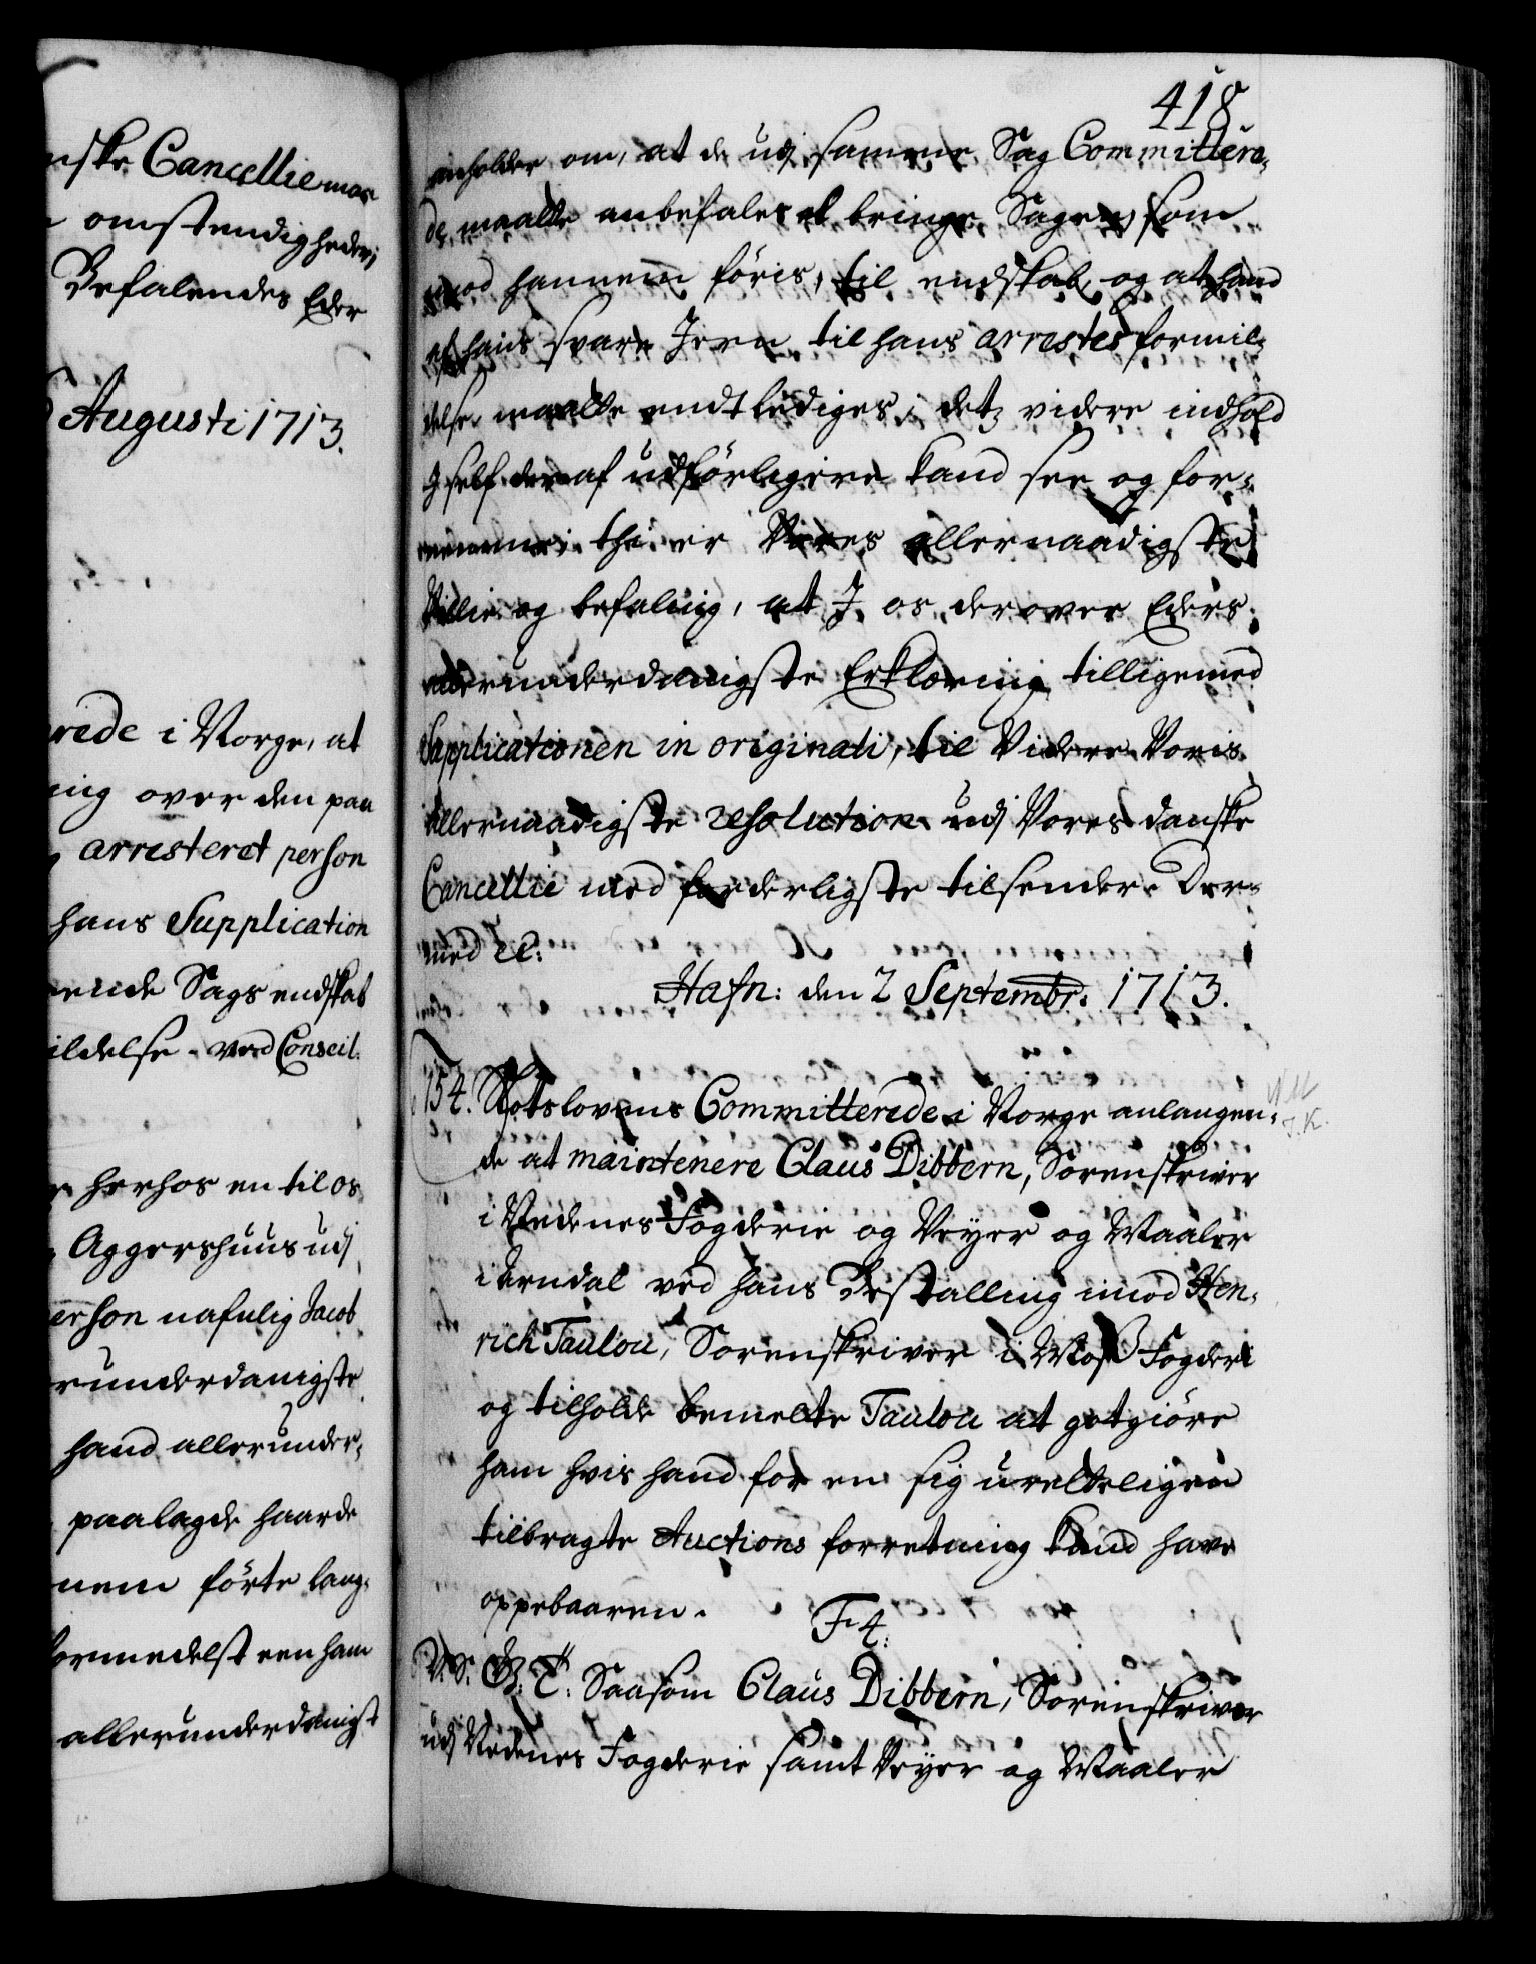 nske Cancellie mas
omstendigheder;
Befalendes Eder
Augusti 1713.
rede i Norge, at
ing over den paa
arresteret person
hans Supplication
ende Sags endskab
ildelse. ved Conseil.
herhos en til os
Aggershuus udj
erson nafnlig Jacob
runderdanigste
hand allerunder-
paalagde haarde
nem förte lang-
formedelst een ham
allerunderdanigst
418
anholder om, at de udj samme Sag Committere-
de maatte anbefales at bringe Sagen, som
mod hannem föris, til endskab, og at hand
af hans svare Jern til hans arrestes formil-
delse maatte endtlediges; detz videre indhold
J self deraf udförligere kand see og for-
nemme; thi er Vores allernaadigste
Villie og befaling, at J os derover Eders
allerunderdanigste Erklæring tilligemed
Supplicationen in originali, til Videre Voris
allernaadigste resolution udj Vores danske
Cancellie med forderligste tilsender. Der-
med etc:
Hafn: den 2 Septembr: 1713.
154. Slotslovens Committerede i Norge anlangen-
de at maintenere Claus Dibbern, Sorenskriver
i Nedenes Fogderie og Veyer og Maaler
i Arndal ved hans Bestalling imod Hen-
rich Taulou, Sorenskriver i Moss Fogderi
og tilholde bemelte Taulou at gotgiöre
ham hvis hand for en sig uretteligen
tilbragte Auctions forretning kand have
oppebaaren.
F 4.
V. S. G. T. Saasom Claus Dibbern, Sorenskriver
udj Nedenes Fogderie samt Veyer og Maaler